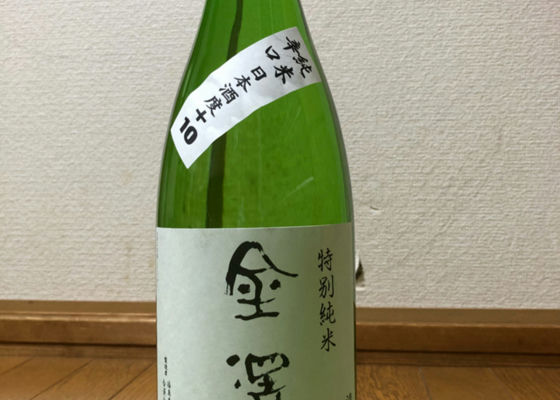 純米 日本酒度+10
辛口
特別純米
金
製造者